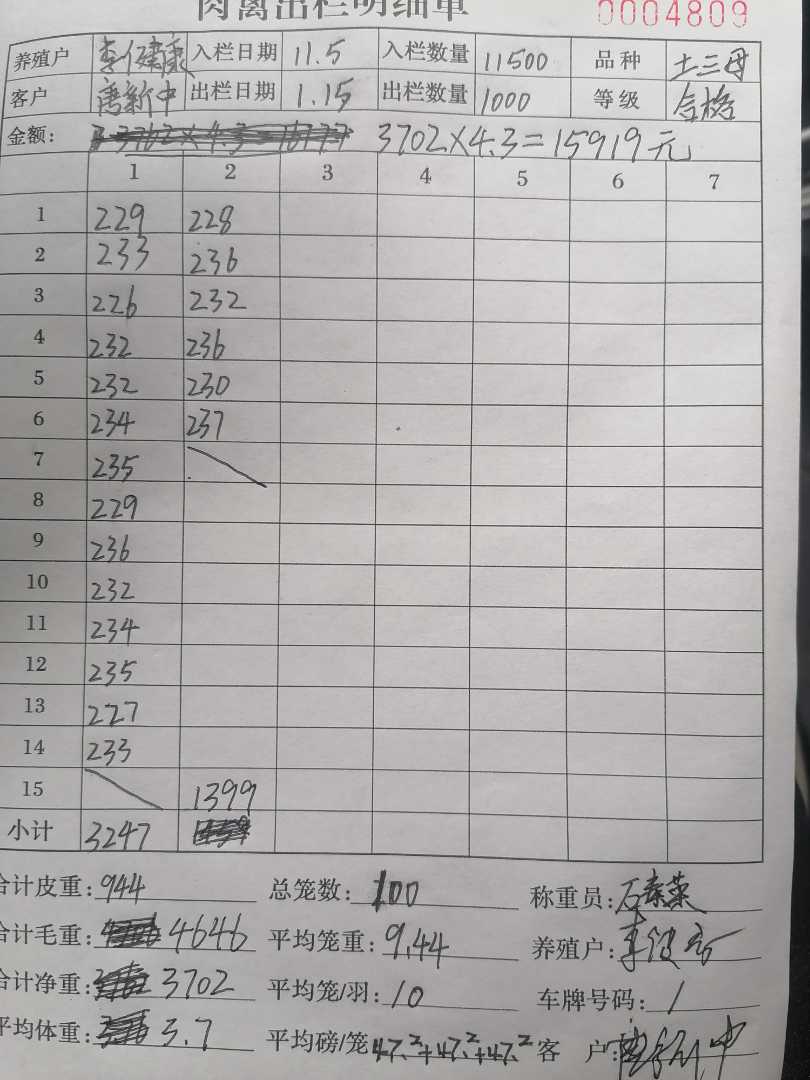 肉禽出栏明细单 0004809
养殖户 李健康 入栏日期 11.5 入栏数量 11500 品种 土三母
客户 唐新中 出栏日期 1.15 出栏数量 1000 等级 合格
金额: 3702×4.3=15919元
1 2 3 4 5 6 7
1 229 228
2 233 236
3 226 232
4 232 236
5 232 230
6 234 237
7 235
8 229
9 236
10 232
11 234
12 235
13 227
14 233
15 1399
小计 3247
合计皮重: 944 总笼数: 100 称重员:
合计毛重: 4646 平均笼重: 9.44 养殖户:
合计净重: 3702 平均笼/羽: 10 车牌号码: /
平均体重: 3.7 平均磅/笼 47.2+47.2+47.2 客户: